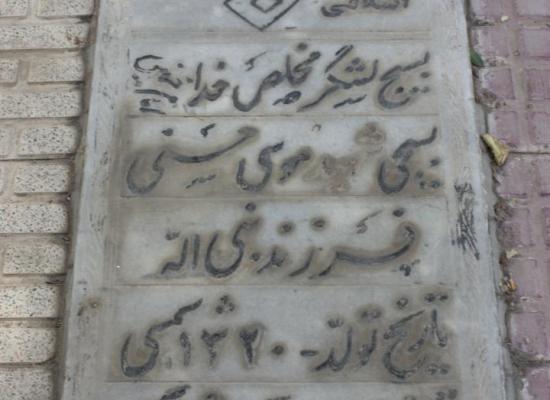 اسلامی
بسیج لشگر مخلص خداست
بسیجی شهید موسی حسینی
فرزند نبی اله
تاریخ تولد - ۱۳۲۰ شمسی